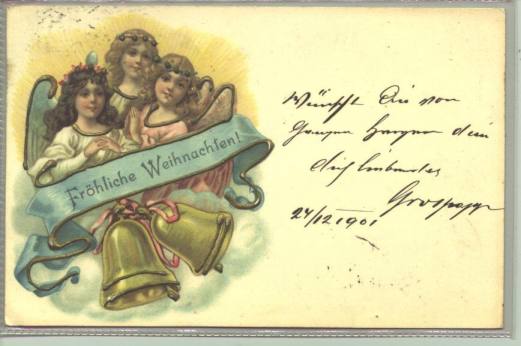 Fröhliche Weihnachten!
Wünscht Dir von
Ganzen Herzen dein
dich liebender
Grospapa
24/12 1901